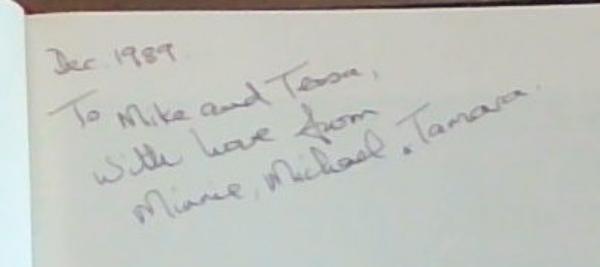 Dec. 1989.
To Mike and Tessa,
With love from
Minnie, Michael, Tamara.